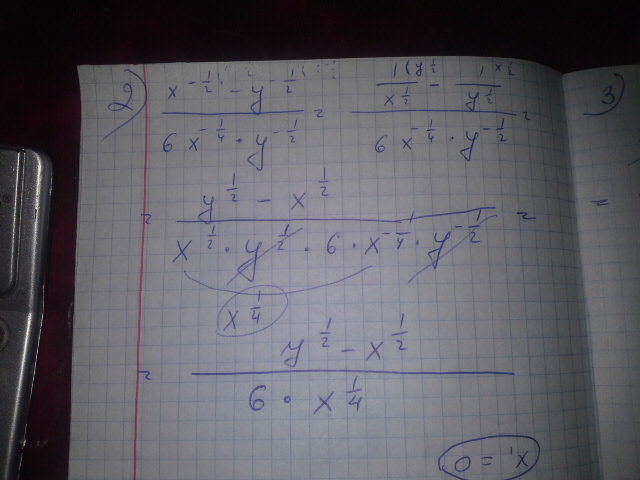 2) (x^{-1/2} - y^{-1/2}) / (6 x^{-1/4} · y^{-1/2}) = (1/x^{1/2} - 1/y^{1/2}) / (6 x^{-1/4} · y^{-1/2}) =
= (y^{1/2} - x^{1/2}) / (x^{1/2} · y^{1/2} · 6 · x^{-1/4} · y^{-1/2}) =
x^{1/4}
= (y^{1/2} - x^{1/2}) / (6 · x^{1/4})
3)
=
x' = 0